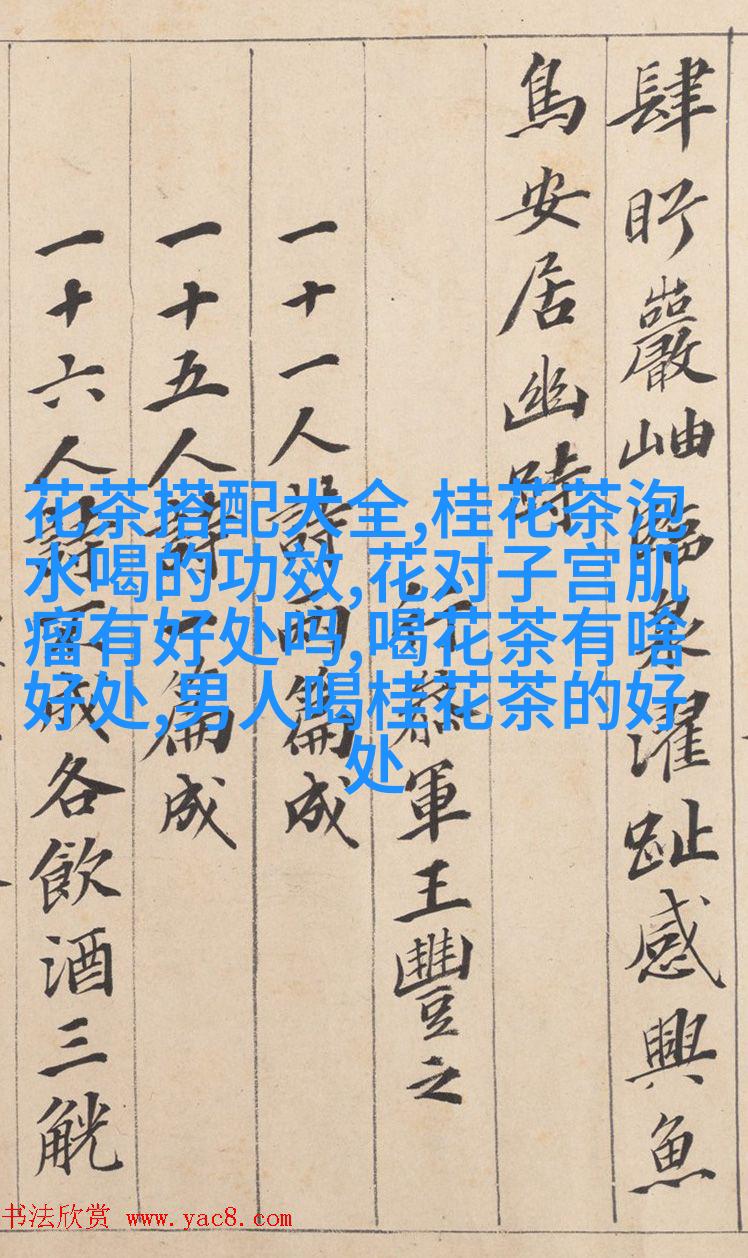 肆眄巖岫臨泉濯趾感興魚
鳥安居幽峙
行叅軍王豐之
一十一人詩兩篇成
一十五人詩一篇成
一十六人詩不成各飲酒三觥
花茶搭配大全,桂花茶泡
水喝的功效,花对子宫肌
瘤有好处吗,喝花茶有啥
好处,男人喝桂花茶的好
处
书法欣赏 www.yac8.com